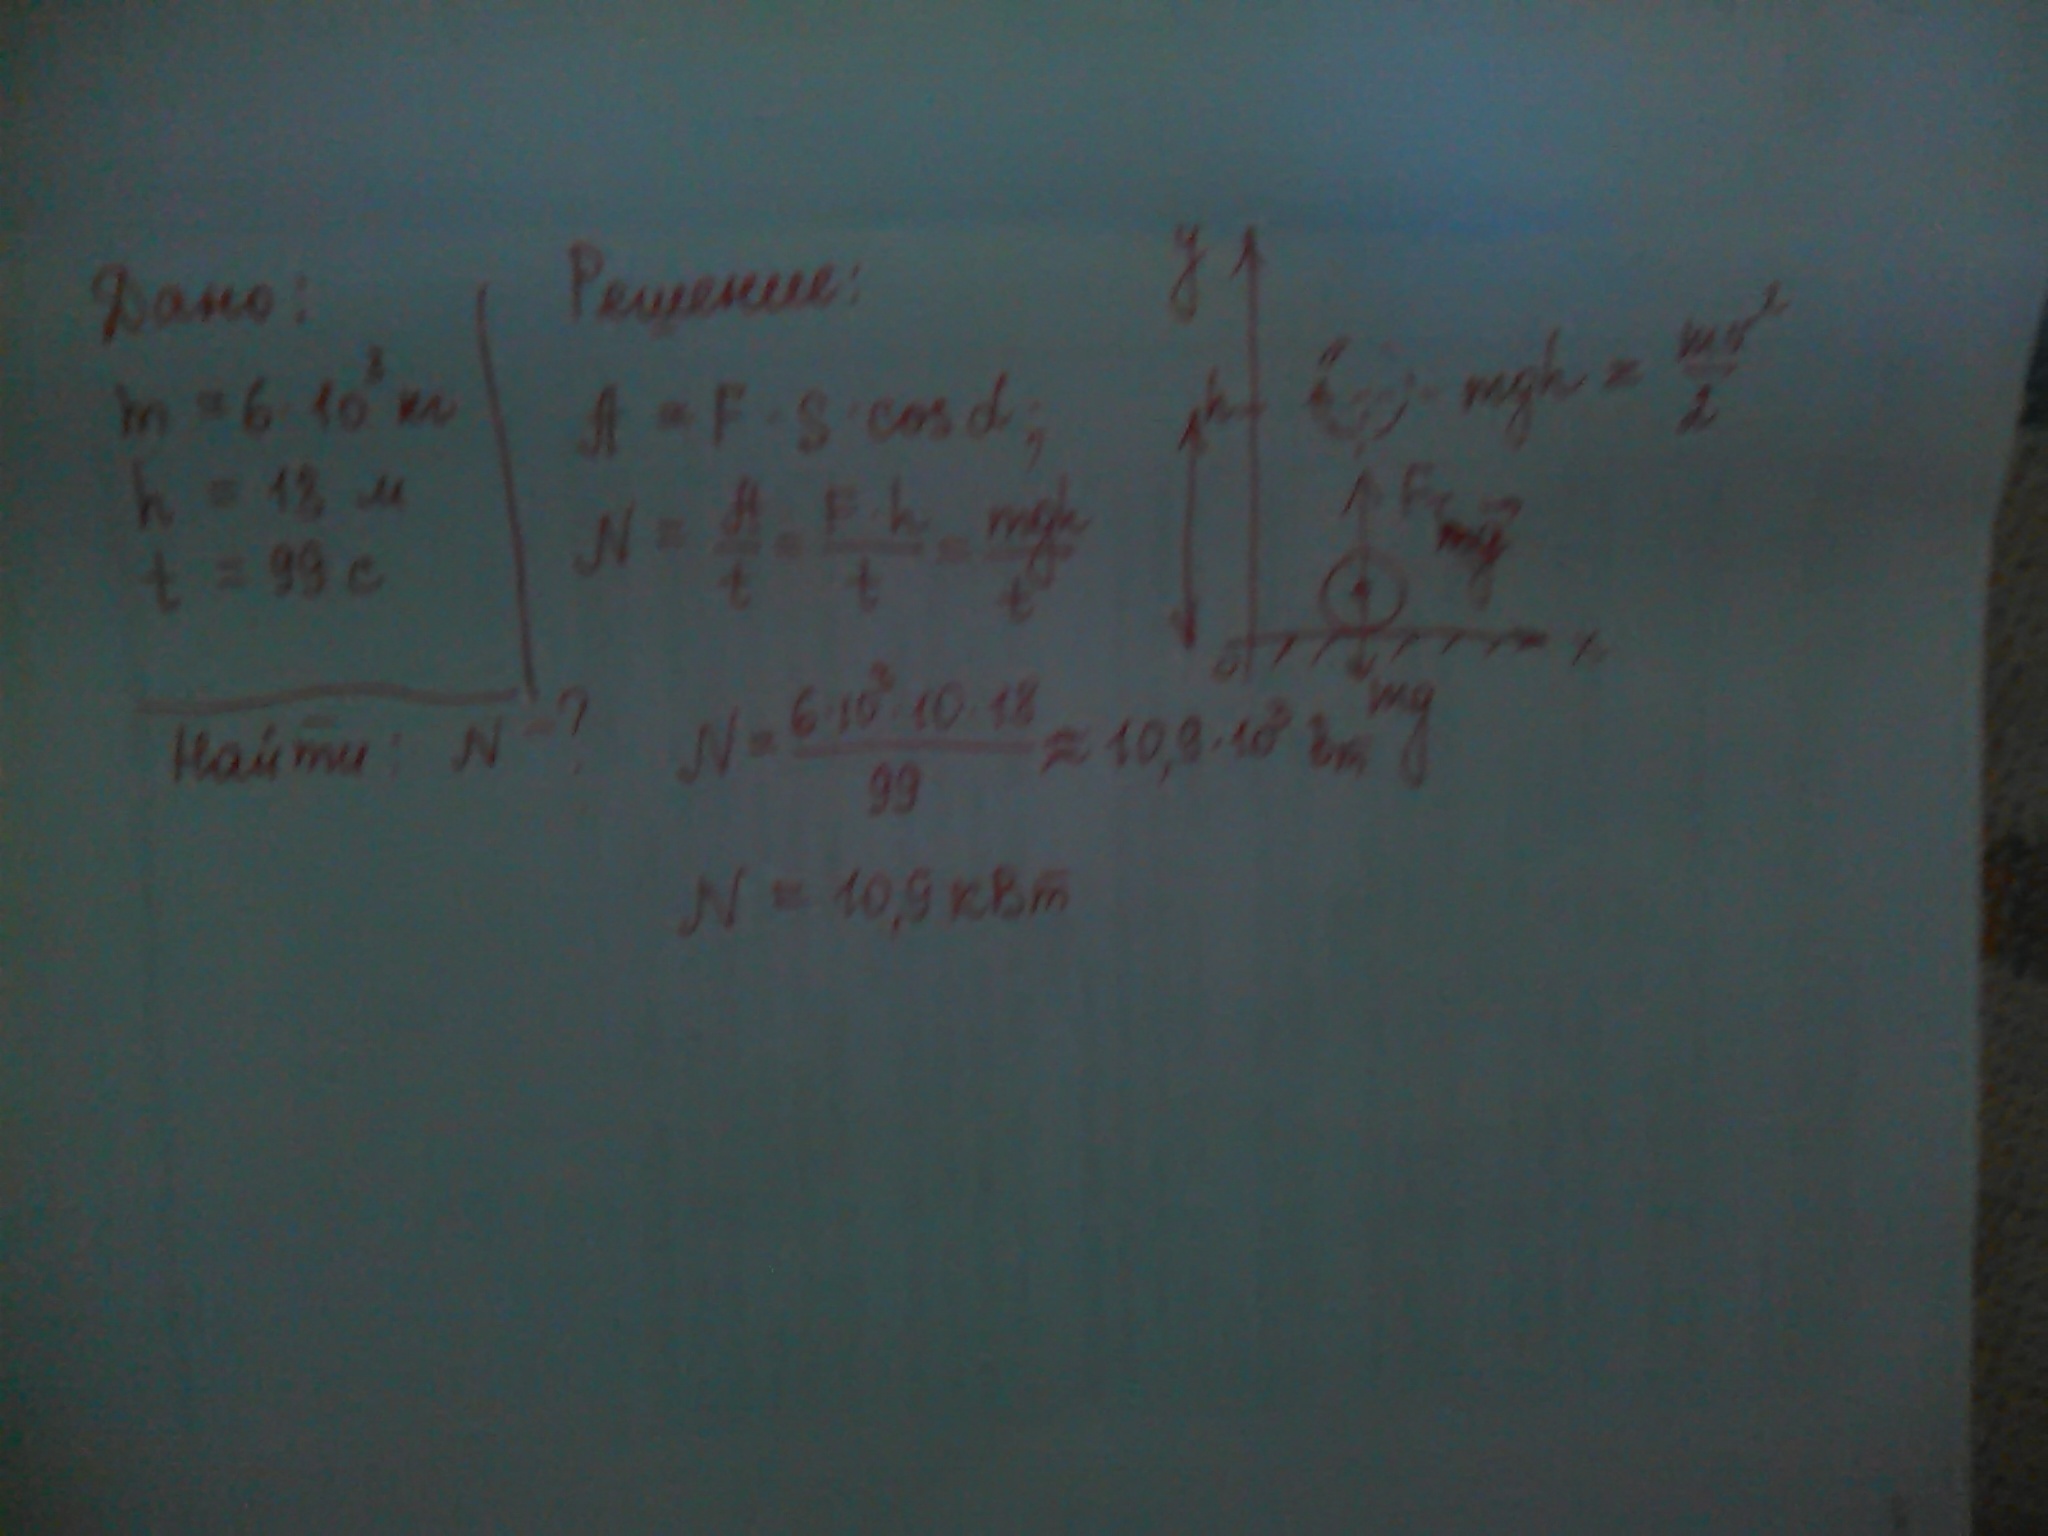 Дано:
m = 6·10³ кг
h = 18 м
t = 99 с
Найти: N - ?
Решение:
A = F · S · cos α;
N = A/t = F·h/t = mgh/t
N = 6·10³·10·18/99 ≈ 10,9·10³ Вт
N = 10,9 кВт
y
h
mgh = mv²/2
F
mg
0
x
mg